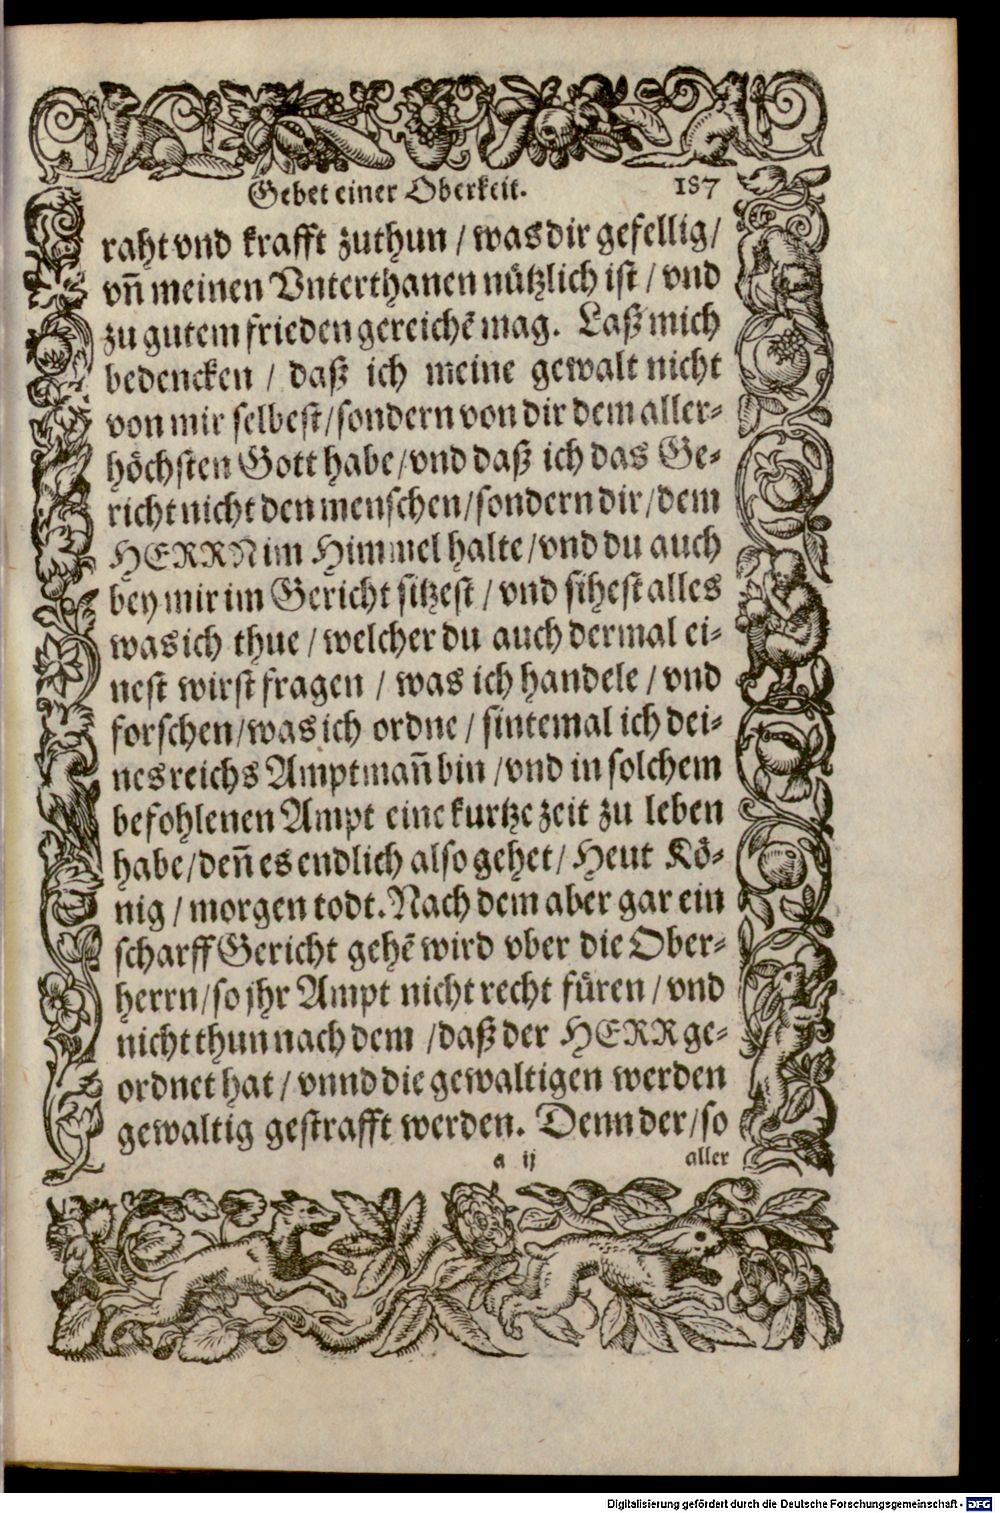 Gebet einer Oberkeit. 187
raht vnd krafft zuthun / was dir gefellig /
vñ meinen Vnterthanen nützlich ist / vnd
zu gutem frieden gereichẽ mag. Laß mich
bedencken / daß ich meine gewalt nicht
von mir selbest / sondern von dir dem aller-
höchsten Gott habe / vnd daß ich das Ge-
richt nicht den menschen / sondern dir / dem
HERRN im Himmel halte / vnd du auch
bey mir im Gericht sitzest / vnd sihest alles
was ich thue / welcher du auch dermal ei-
nest wirst fragen / was ich handele / vnd
forschen / was ich ordne / sintemal ich dei-
nes reichs Amptmañ bin / vnd in solchem
befohlenen Ampt eine kurtze zeit zu leben
habe / deñ es endlich also gehet / Heut Kö-
nig / morgen todt. Nach dem aber gar ein
scharff Gericht gehẽ wird vber die Ober-
herrn / so jhr Ampt nicht recht füren / vnd
nicht thun nach dem / daß der HERR ge-
ordnet hat / vnnd die gewaltigen werden
gewaltig gestrafft werden. Denn der / so
a ij aller
Digitalisierung gefördert durch die Deutsche Forschungsgemeinschaft - DFG